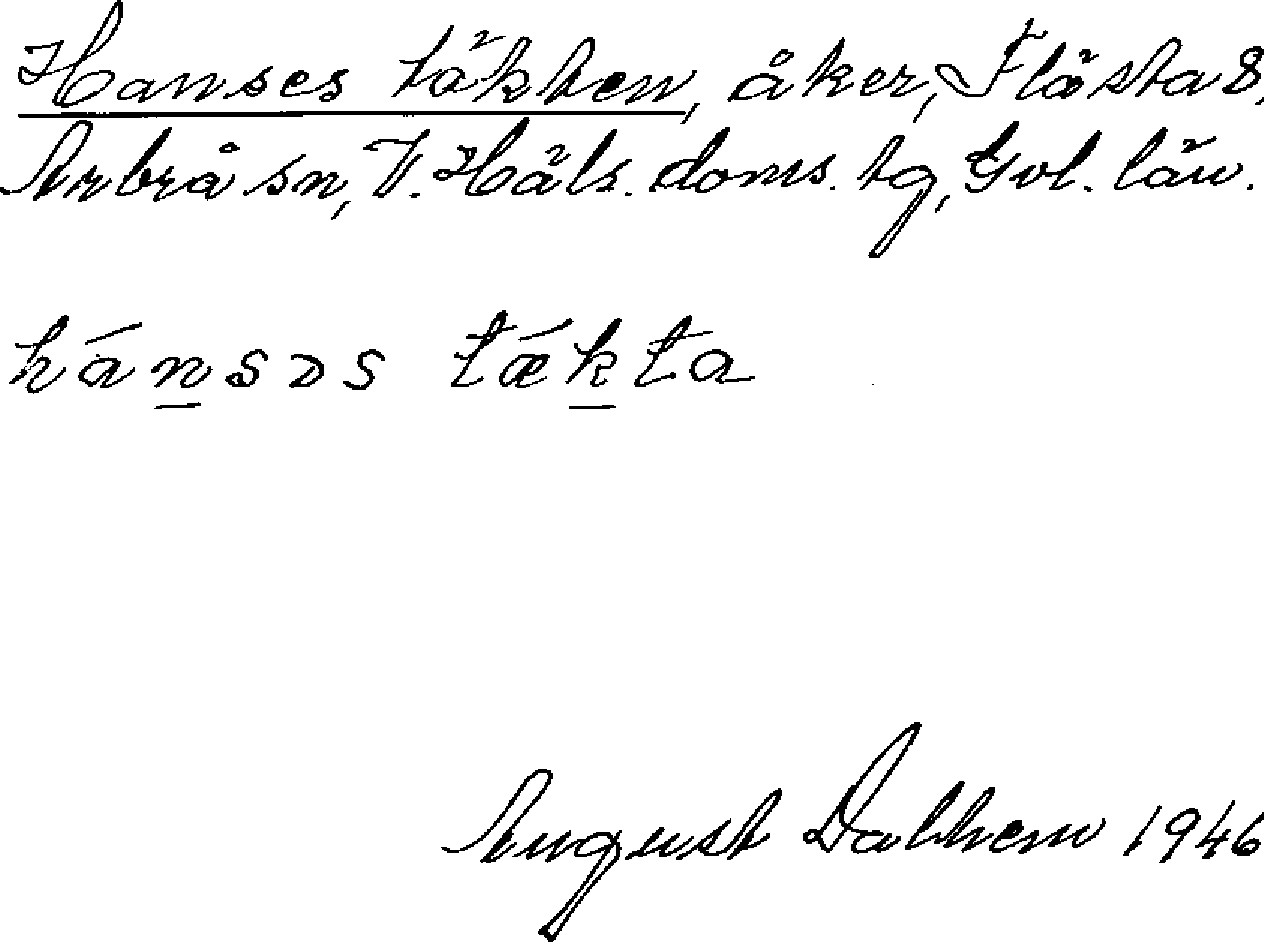 Hanses täkten, åker, Flästa 8,
Arbrå sn, V. Häls. doms. tg, Gvl. län.
hánsəs tǽkta
August Dalhem 1946